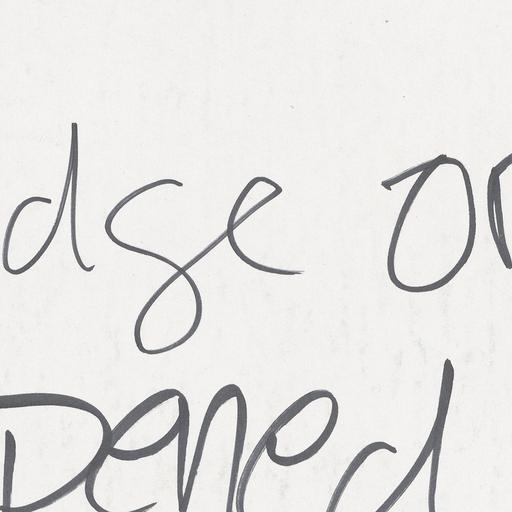 dge or
pened